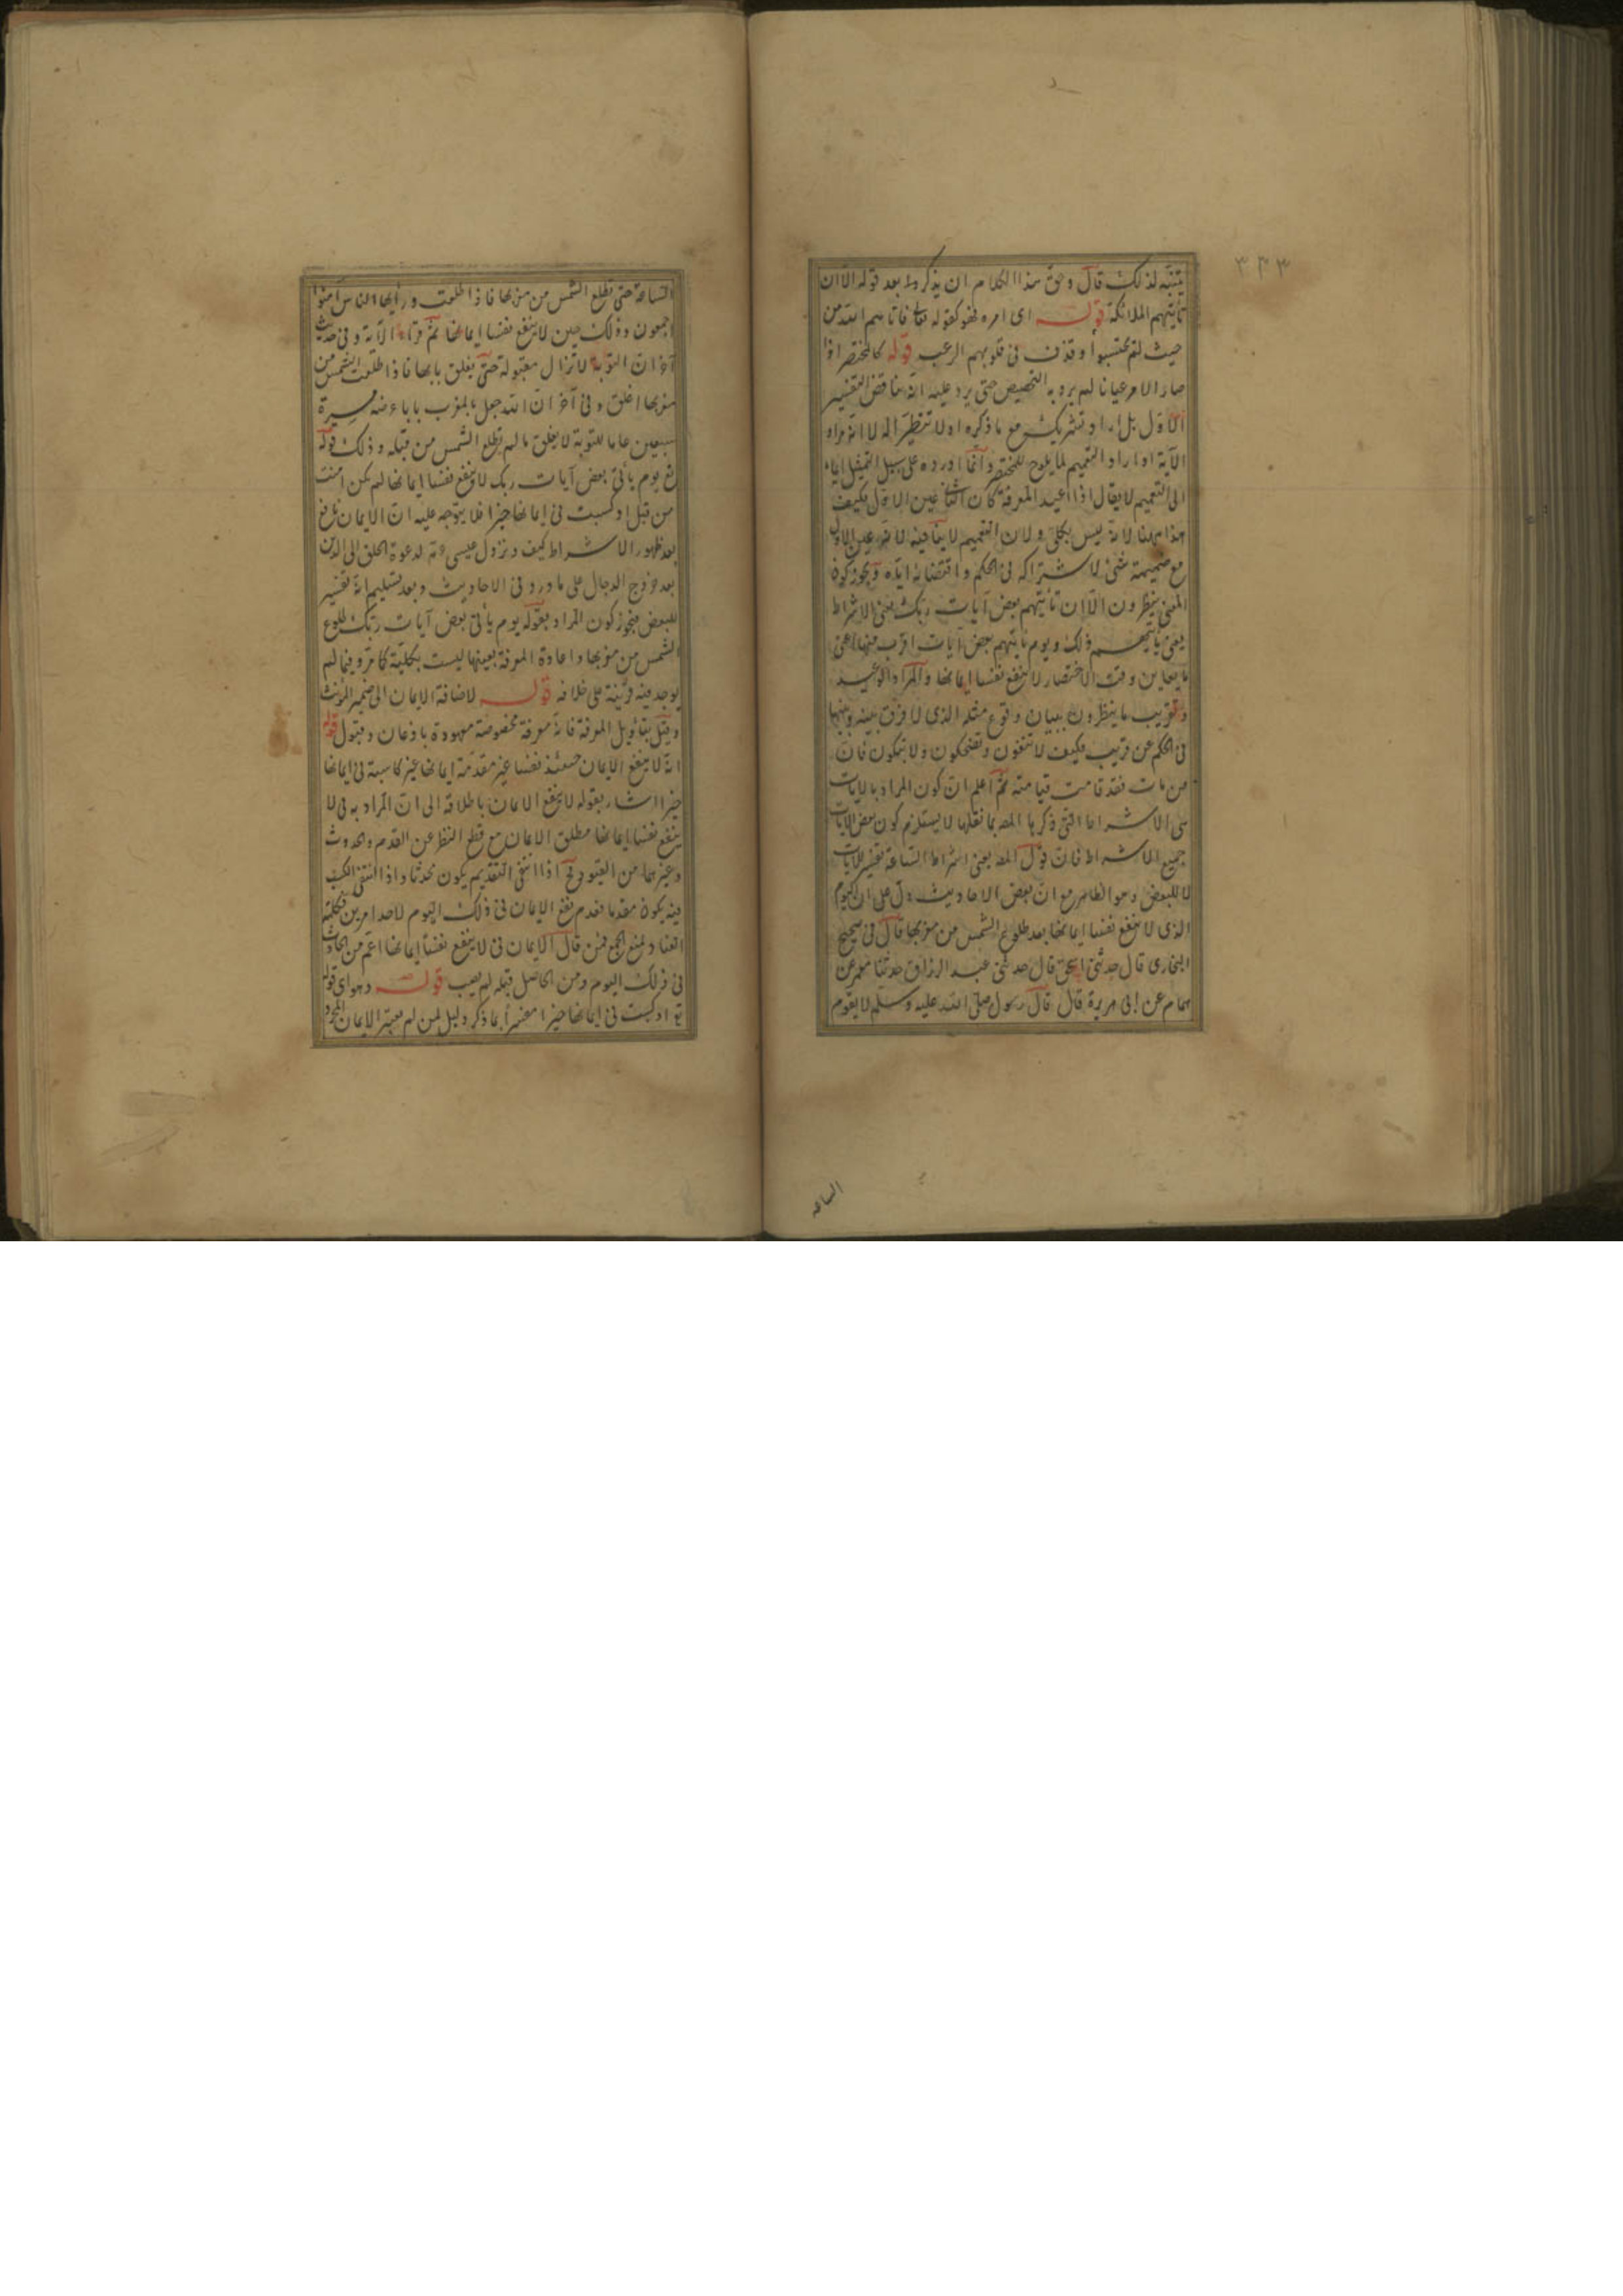 ٣٤٣
يتنبّه لذلك قال وحق هذا الكلام ان يذكر وط بعد قوله الا ان
تأتيهم الملائكة قولـه اى امره فهو كقوله تعالى فاتاهم الله من
حيث لم يحتسبوا وقذف فى قلوبهم الرعب قوله كالمحتضر اذا
صار الامر عيانا لم يرد به التخصيص حتى يرد عليه انه يناقض التفسير
الاول بل اراد تشريك مع ما ذكره اولا تنظيرا له لا انه مراد
الآية او اراد التعميم لما يلوح للمحتضر وانما اورده على سبيل التمثيل ايماء
الى التعميم لا يقال اذا اعيد المعرفة كان الثانى عين الاول فكيف
هذا مهنا لانه ليس بكلى ولان التعميم لا ينافيه لانه عين الاول
مع ضميمة شئ لاشتراكه فى الحكم واقتضائه اياه ويجوز كون
المعنى ينظرون الا ان تأتيهم بعض آيات ربك يعنى الاشراط
يعنى يأتيهم ذلك ويوم ياتيهم بعض آيات اقرب منها اعنى
ما يعاين وقت الاحتضار لا ينفع نفسا ايمانها والمراد الوعيد
وتقريب ما ينظرون ببيان وقوع مثله الذى لا فرق بينه وبينها
فى الحكم عن قريب فكيف لا تتقون وتضحكون ولا تبكون فان
من مات فقد قامت قيامته ثم اعلم ان كون المراد بالايات
هى الاشراط التى ذكرها المصـ بما نقلها لا يستلزم كون بعض الايات
جميع الاشراط فان قول المصـ يعنى اشراط الساعة تفسير للايات
لا للبعض وهو الظاهر مع ان بعض الاحاديث دل على ان اليوم
الذى لا ينفع نفسا ايمانها بعد طلوع الشمس من مغربها قال فى صحيح
البخارى قال حدثنى اسحق قال حدثنى عبد الرزاق حدثنا معمر عن
همام عن ابى هريرة قال قال رسول صلى الله عليه وسلم لا يقوم
الساعة
الساعة حتى تطلع الشمس من مغربها فاذا طلعت ورأيها الناس آمنوا
اجمعون وذلك حين لا ينفع نفسا ايمانها ثم قراء الآية وفى حديث
آخر ان التوبة لا تزال مقبولة حتى يغلق بابها فاذا طلعت الشمس من
مغربها اغلق وفى آخر ان الله جعل بالمغرب بابا عرضه مسيرة
سبعين عاما للتوبة لا يغلق ما لم تطلع الشمس من قبله وذلك قوله
تع يوم يأتى بعض آيات ربك لا ينفع نفسا ايمانها لم يكن امنت
من قبل او كسبت فى ايمانها خيرا فلا يتوجه عليه ان الايمان نافع
بعد ظهور الاشراط كيف ونزول عيسى عم لدعوة الخلق الى الدين
بعد خروج الدجال على ما ورد فى الاحاديث وبعد تسليم انه تفسير
للبعض فيجوز كون المراد بقوله يوم يأتى بعض آيات ربك طلوع
الشمس من مغربها واعادة المعرفة بعينها ليست بكلية كما مر وفيما لم
يوجد فيه قرينة على خلافه قولـه لاضافة الايمان الى ضمير المؤنث
وقيل بتأويل المعرفة فانه معرفة مخصوصة معهودة باذعان وقبول قوله
انه لا ينفع الايمان حينئذ نفسا غير مقدمة ايمانها غير كاسبة فى ايمانها
خيرا اشار بقوله لا ينفع الايمان باطلاقه الى ان المراد به فى لا
ينفع نفسا ايمانها مطلق الايمان مع قطع النظر عن القدم والحدوث
وغيرهما من القيود وح اذا انتفى التقديم يكون محدثا واذا انتفى الكسب
فيه يكون مقدما فعدم نفع الايمان فى ذلك اليوم لاحد امرين فكلمة
او لمنع الجمع فمن قال الايمان فى لا ينفع نفسا ايمانها اعم من الحادث
فى ذلك اليوم ومن الحاصل قبله لم يصب قولـه وهو اى قوله
تع او كسبت فى ايمانها خيرا معتبرا بما ذكر دليل لمن لم يعتبر الايمان المجرد